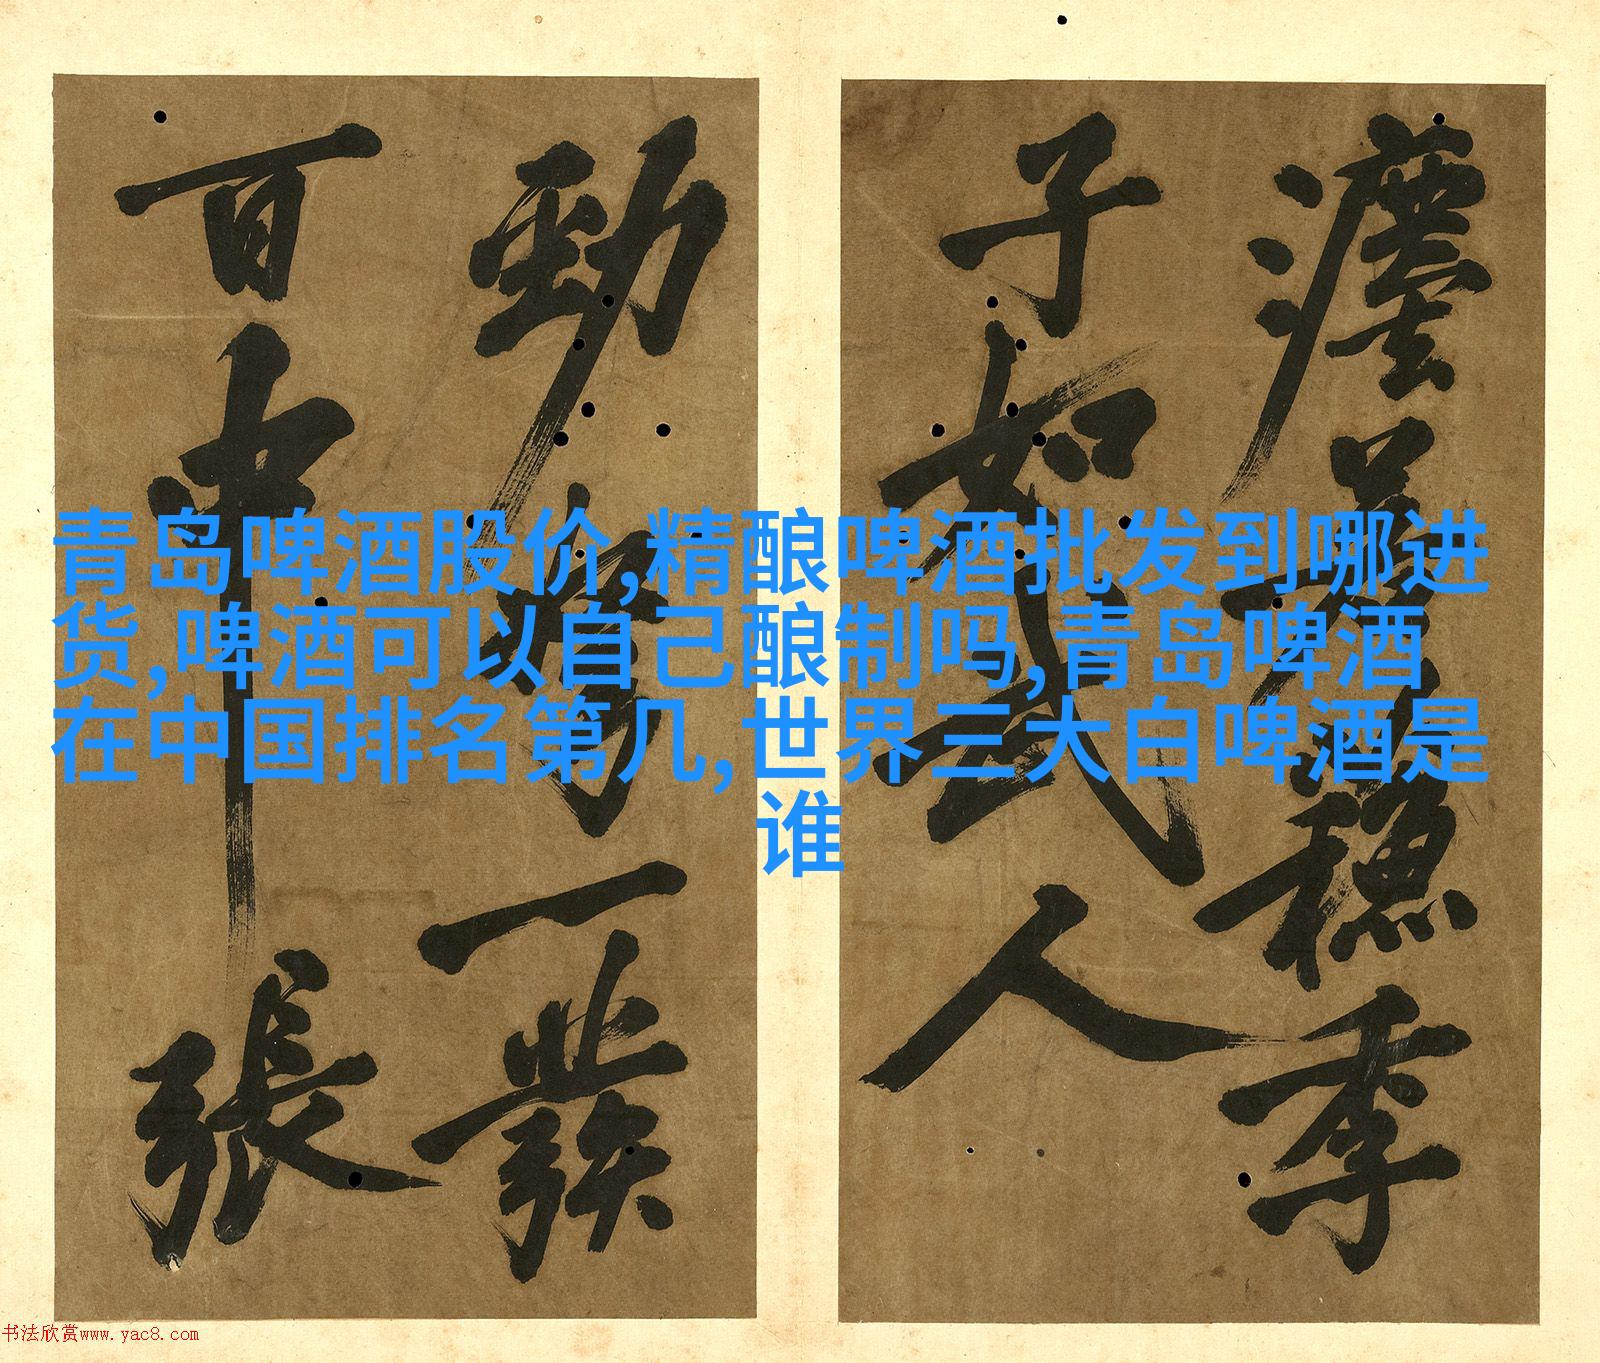 青岛啤酒股价,精酿啤酒批发到哪进
货,啤酒可以自己酿制吗,青岛啤酒
在中国排名第几,世界三大白啤酒是
谁
穗季
子如人
勁一發
百中張
书法欣赏www.yac8.com